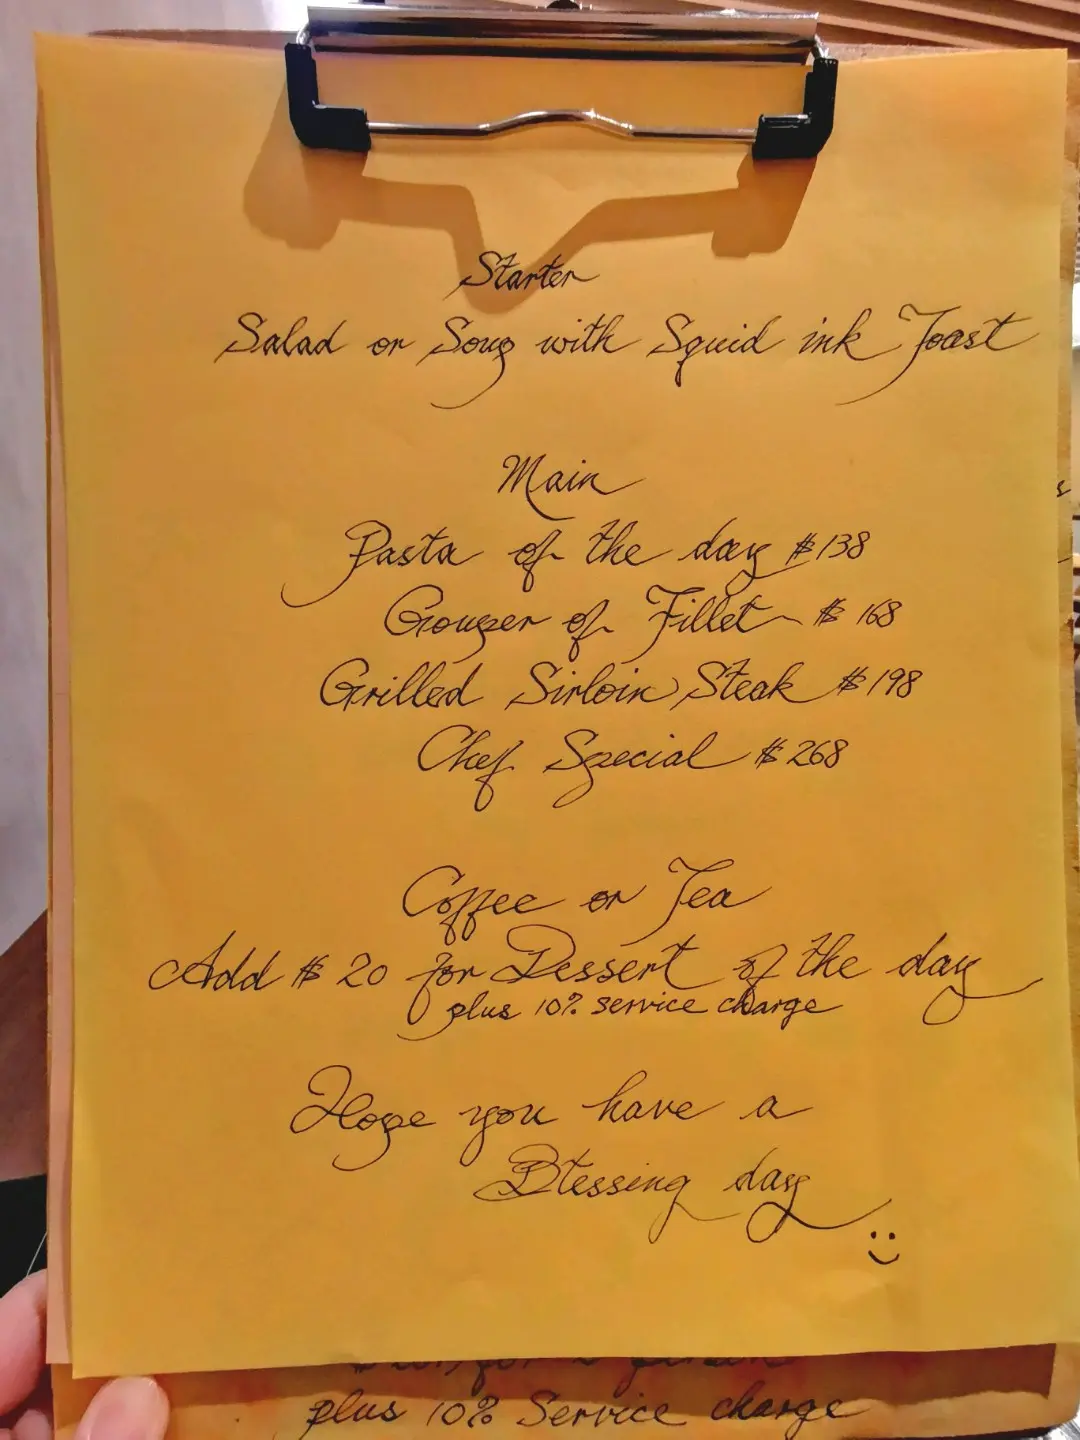 Starter
Salad or Soup with Squid ink Toast
Main
Pasta of the day $138
Grouper of Fillet $168
Grilled Sirloin Steak $198
Chef Special $268
Coffee or Tea
Add $20 for Dessert of the day
plus 10% service charge
Hope you have a
Blessing day
plus 10% Service charge